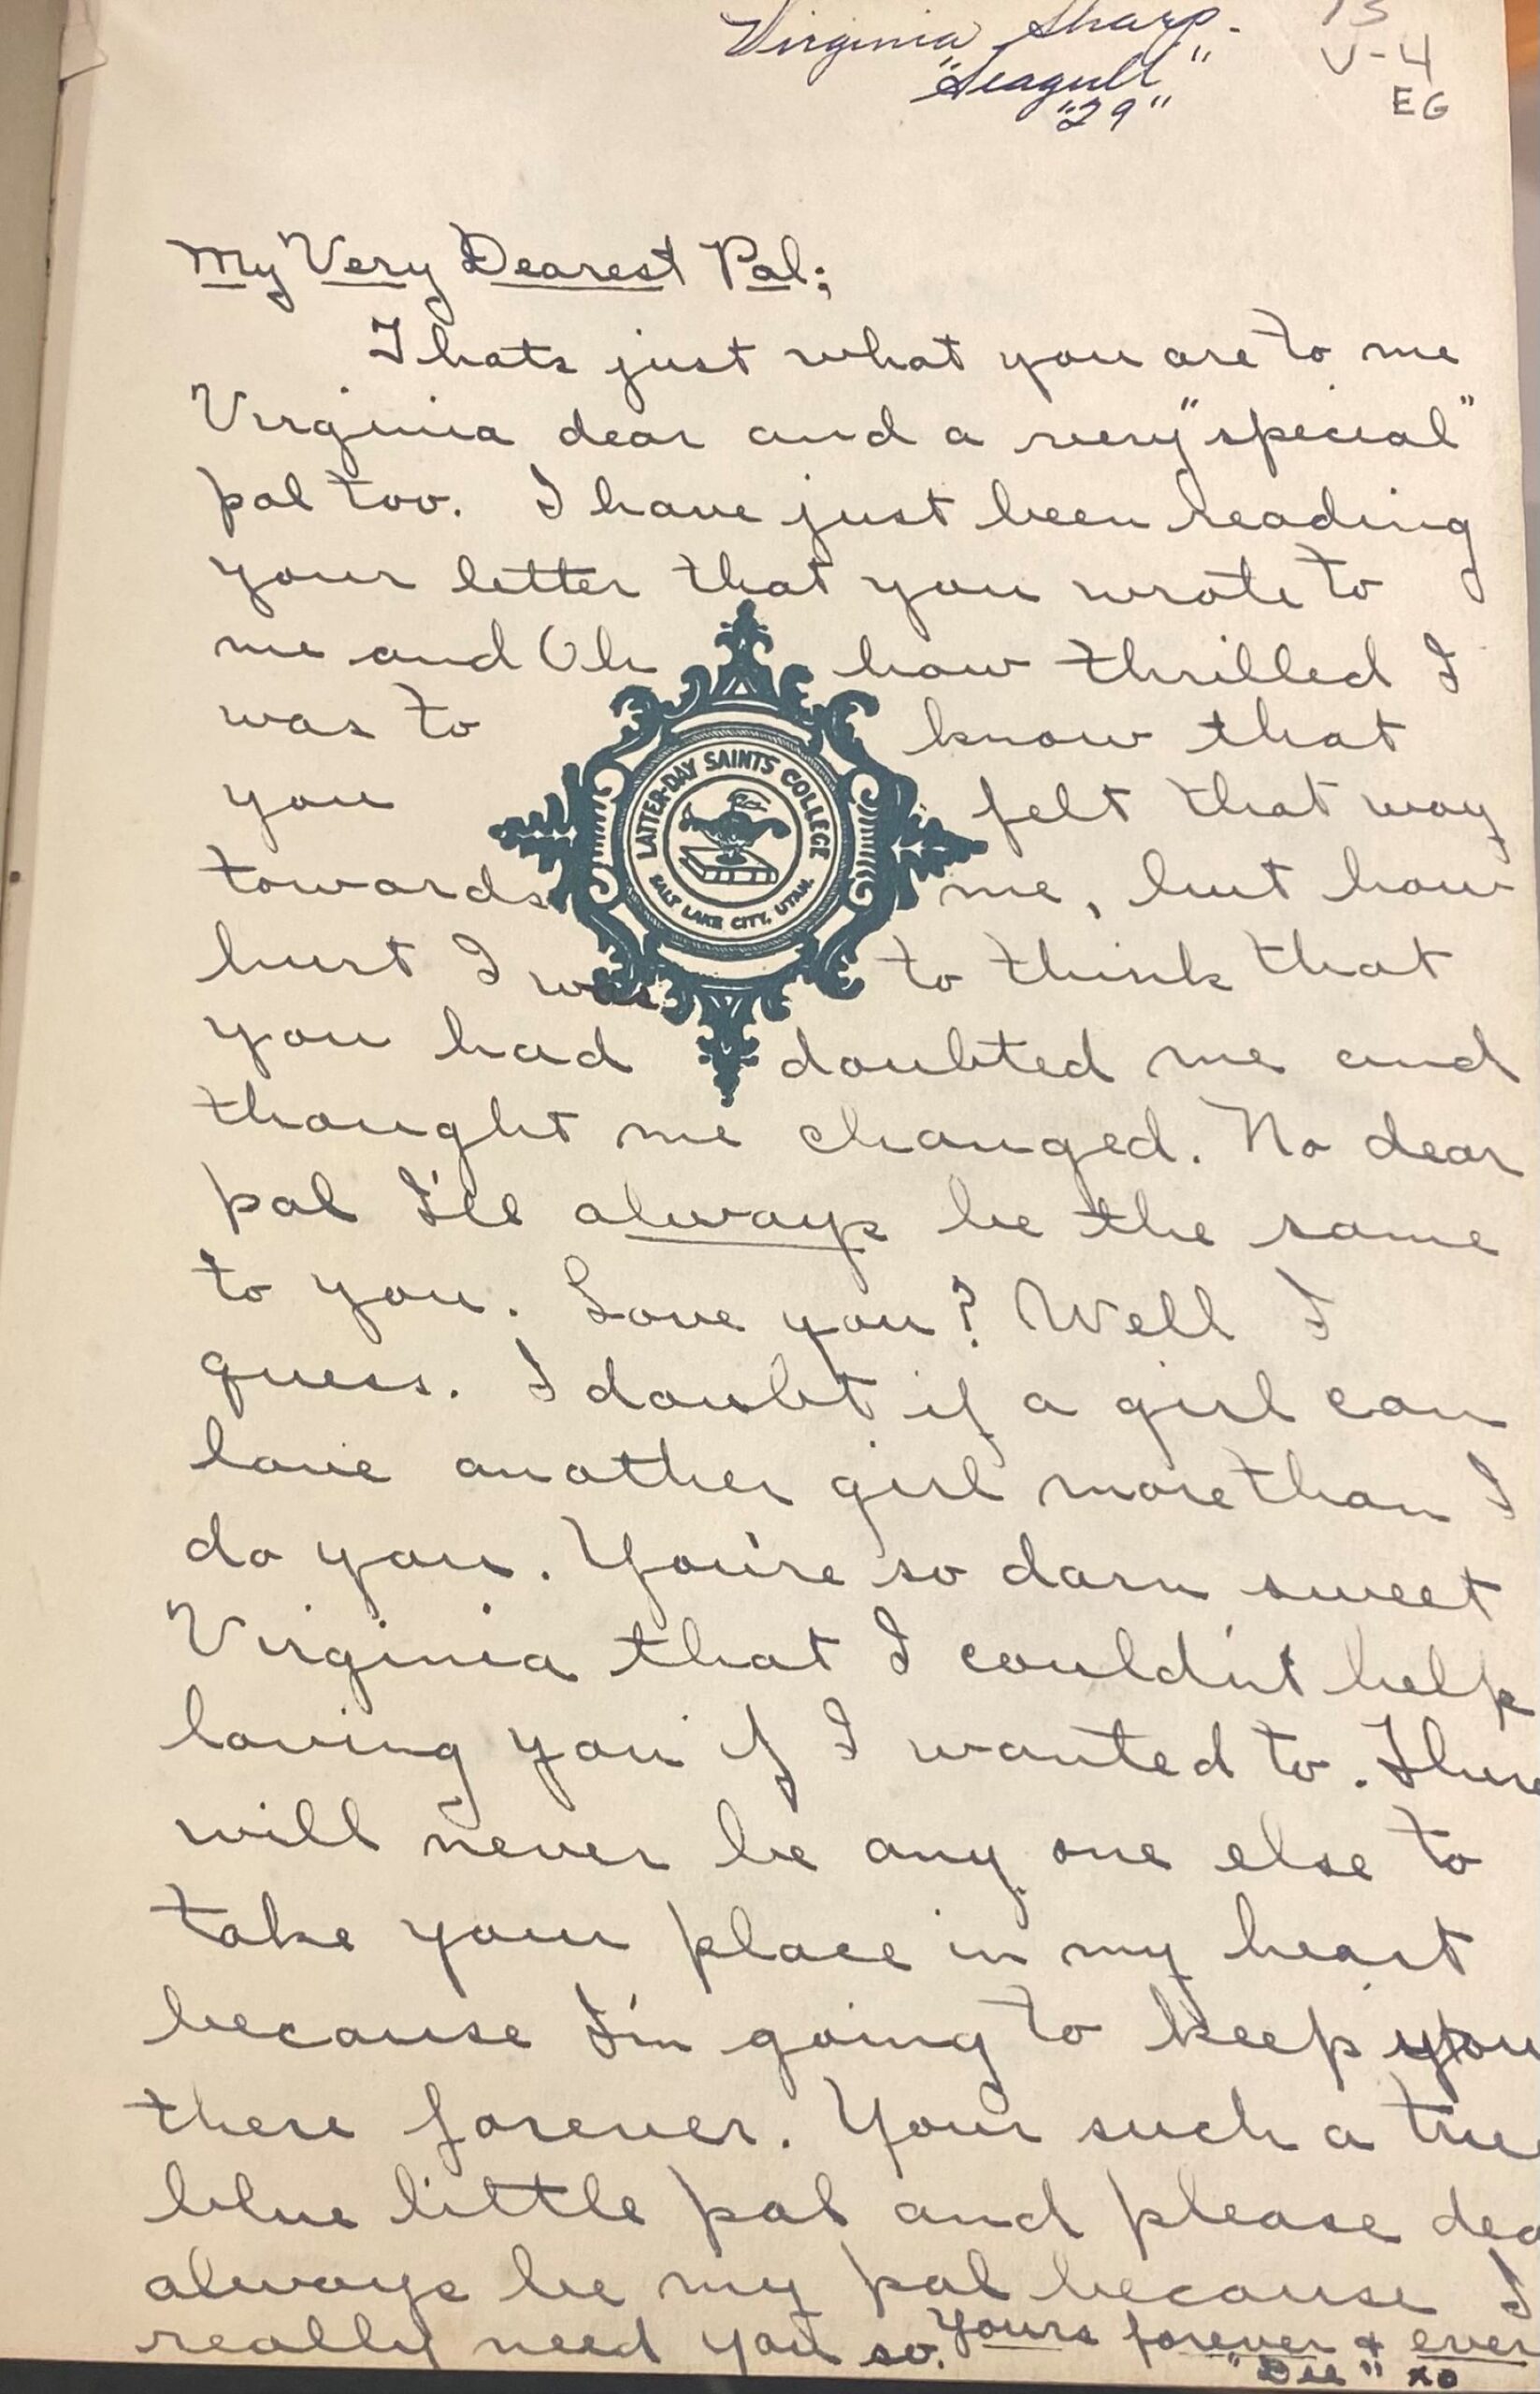 Virginia Sharp.
"Seagull"
"29"
V-4
EG
My Very Dearest Pal;
Thats just what you are to me
Virginia dear and a very "special"
pal too. I have just been reading
your letter that you wrote to
me and Oh how thrilled I
was to know that
you felt that way
towards me, but how
hurt I was to think that
you had doubted me and
thought me changed. No dear
pal I'll always be the same
to you. Love you? Well I
guess. I doubt if a girl can
love another girl more than I
do you. You're so darn sweet
Virginia that I couldn't help
loving you if I wanted to. There
will never be any one else to
take your place in my heart
because I'm going to keep you
there forever. Your such a true
blue little pal and please dea
always be my pal because I
really need you so. Yours forever & ever
"Dee" xo
LATTER-DAY SAINTS COLLEGE
SALT LAKE CITY, UTAH.